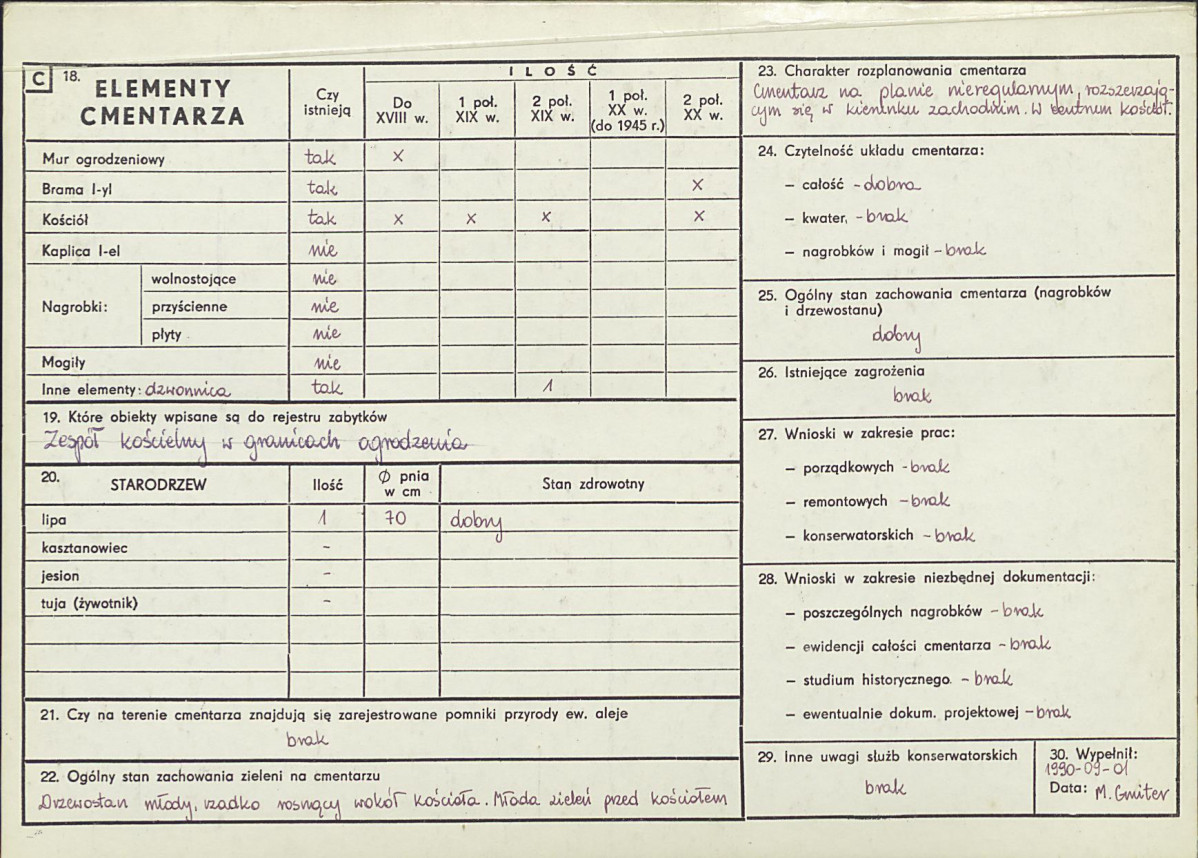 C 18. ELEMENTY CMENTARZA
Czy istnieją
ILOŚĆ
Do XVIII w.
1 poł. XIX w.
2 poł. XIX w.
1 poł. XX w. (do 1945 r.)
2 poł. XX w.
Mur ogrodzeniowy tak x
Brama I-yl tak x
Kościół tak x x x x
Kaplica I-el nie
Nagrobki:
wolnostojące nie
przyścienne nie
płyty nie
Mogiły nie
Inne elementy: dzwonnica tak 1
19. Które obiekty wpisane są do rejestru zabytków
Zespół kościelny w granicach ogrodzenia
20. STARODRZEW Ilość Ø pnia w cm Stan zdrowotny
lipa 1 70 dobry
kasztanowiec -
jesion -
tuja (żywotnik) -
21. Czy na terenie cmentarza znajdują się zarejestrowane pomniki przyrody ew. aleje
brak
22. Ogólny stan zachowania zieleni na cmentarzu
Drzewostan młody, rzadko rosnący wokół kościoła. Młoda zieleń przed kościołem
23. Charakter rozplanowania cmentarza
Cmentarz na planie nieregularnym, rozszerzają-
cym się w kierunku zachodnim. W centrum kościół.
24. Czytelność układu cmentarza:
— całość - dobra
— kwater, - brak
— nagrobków i mogił - brak
25. Ogólny stan zachowania cmentarza (nagrobków
i drzewostanu)
dobry
26. Istniejące zagrożenia
brak
27. Wnioski w zakresie prac:
— porządkowych - brak
— remontowych - brak
— konserwatorskich - brak
28. Wnioski w zakresie niezbędnej dokumentacji:
— poszczególnych nagrobków - brak
— ewidencji całości cmentarza - brak
— studium historycznego - brak
— ewentualnie dokum. projektowej - brak
29. Inne uwagi służb konserwatorskich
brak
30. Wypełnił:
1990-09-01
Data: M. Gmiter